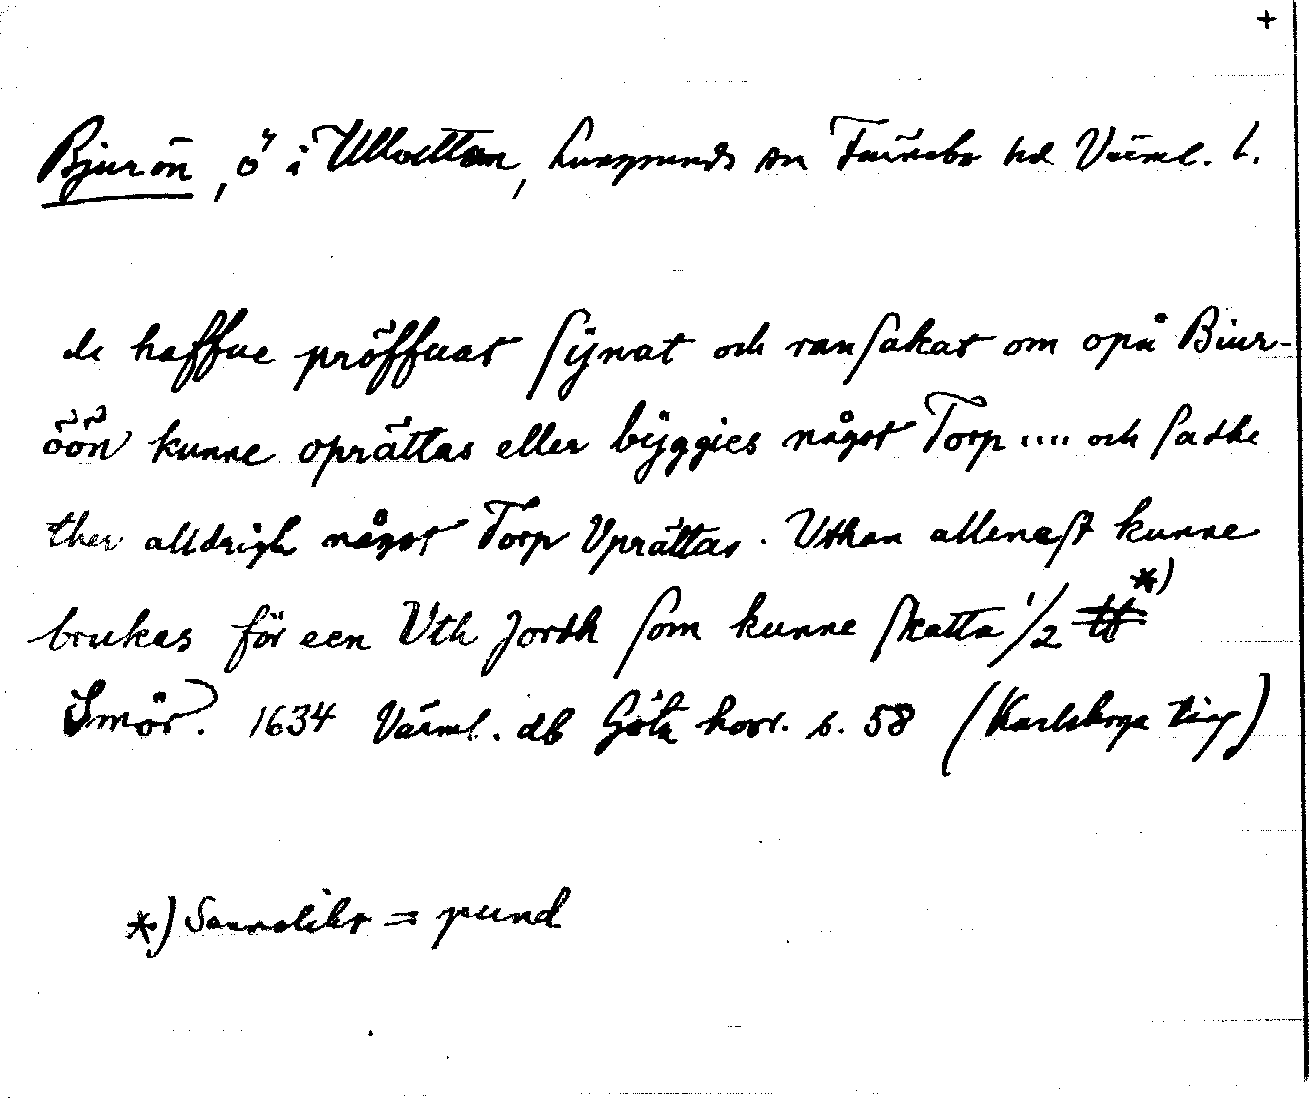 +
Bjurön, ö i Ullvettern, Lungsunds sn Färnebo hd Värml. l.
de haffue pröffuat sijnat och ransakat om opå Biur-
öön kunne oprättas eller byggies något Torp .... och sadhe
ther alldrigh något Torp Vprättas. Vthan allenast kunne
brukas för een Vth Jordh som kunne skatta 1/2 ℔ *)
Smör. 1634 Värml. db Göta hovr. s. 58 (Karlskoga ting)
*) Sannolikt = pund